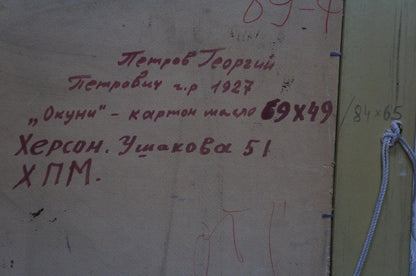 69-4
Петров Георгий
Петрович г.р 1927
„Окуни" - картон масло 69х49 / 84х65
Херсон. Ушакова 51
ХПМ.